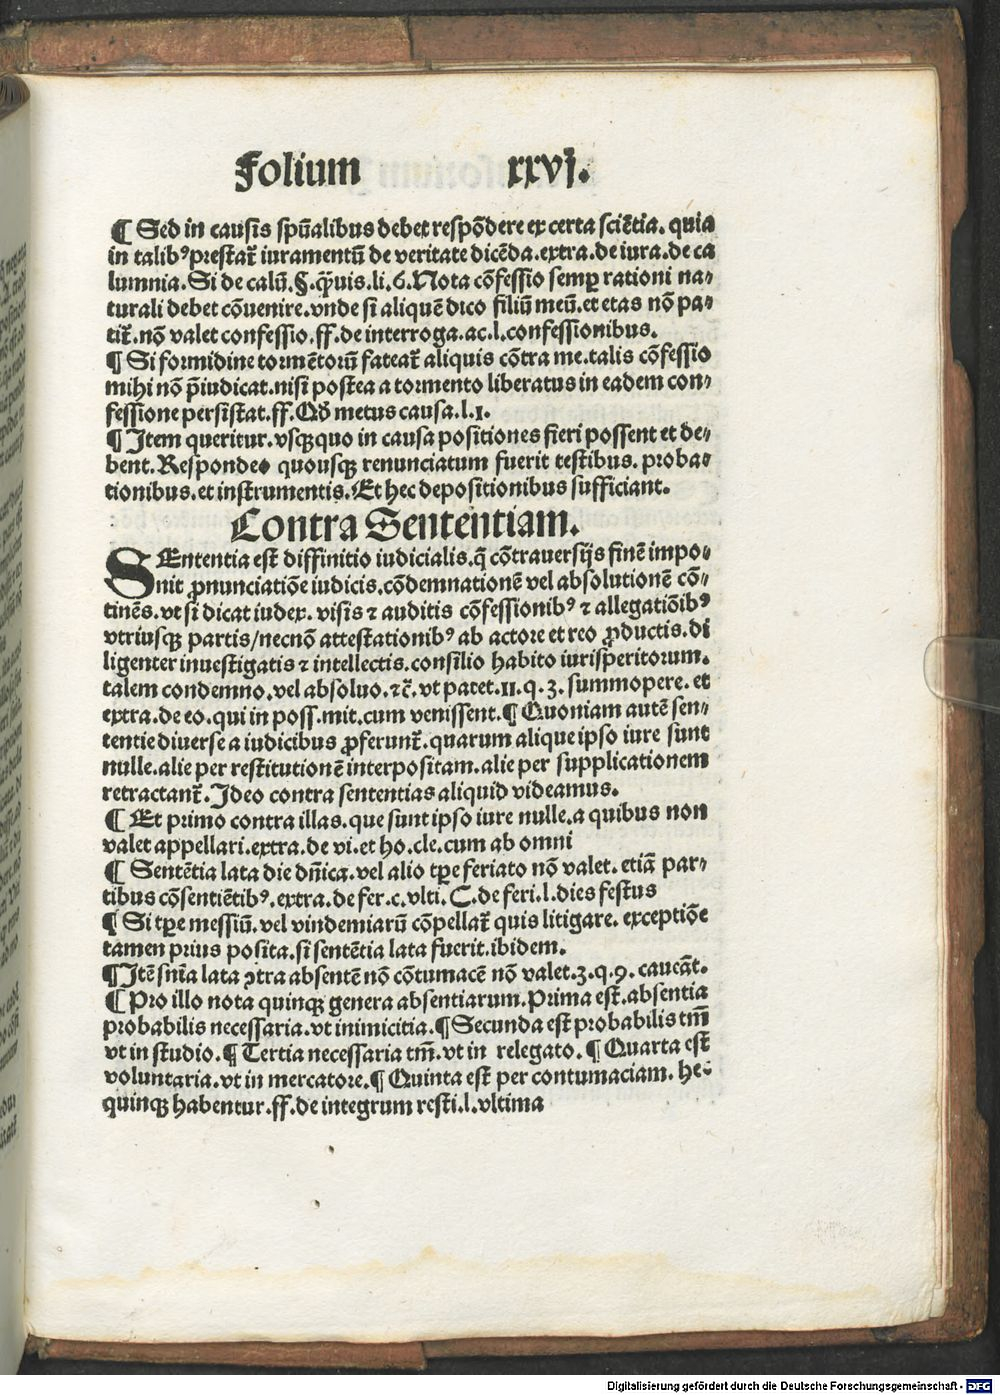 Folium xxvj.
¶ Sed in causis spūalibus debet respōdere ex certa sciētia. quia
in talibꝰ prestat̄ iuramentū de veritate dicēda. extra. de iura. de ca
lumnia. Si de calū. §. qꝫuis. li. 6. Nota cōfessio semꝑ rationi na⸗
turali debet cōuenire. vnde si aliquē dico filiū meū. et etas nō pa⸗
tit̄. nō valet confessio. ff. de interroga. ac. l. confessionibus.
¶ Si formidine tormētorū fateat̄ aliquis cōtra me. talis cōfessio
mihi nō p̄iudicat. nisi postea a tormento liberatus in eadem con⸗
fessione persistat. ff. Qđ metus causa. l. 1.
¶ Item queritur. vsqꝫ quo in causa positiones fieri possent et de⸗
bent. Respondeo quousqꝫ renunciatum fuerit testibus. proba⸗
tionibus. et instrumentis. Et hec de positionibus sufficiant.
Contra Sententiam.
SEntentia est diffinitio iudicialis. q̄ cōtrauersijs finē impo⸗
nit ꝓnunciatiōe iudicis. cōdemnationē vel absolutionē cō⸗
tinēs. vt si dicat iudex. visis ⁊ auditis cōfessionibꝰ ⁊ allegatiōibꝰ
vtriusqꝫ partis/necnō attestationibꝰ ab actore et reo ꝓductis. di
ligenter inuestigatis ⁊ intellectis. consilio habito iurisꝑitorum.
talem condemno. vel absoluo. ⁊c̄. vt patet. 11. q. 3. summopere. et
extra. de eo. qui in poss. mit. cum venissent. ¶ Quoniam autē sen⸗
tentie diuerse a iudicibus ꝓferunt̄. quarum alique ipso iure sunt
nulle. alie per restitutionē interpositam. alie per supplicationem
retractant̄. Ideo contra sententias aliquid videamus.
¶ Et primo contra illas. que sunt ipso iure nulle. a quibus non
valet appellari. extra. de vi. et ho. cle. cum ab omni
¶ Sentētia lata die dn̄ica. vel alio tꝑe feriato nō valet. etiā par⸗
tibus cōsentiētibꝰ. extra. de fer. c. vlti. C. de feri. l. dies festus
¶ Si tꝑe messiū. vel vindemiarū cōpellat̄ quis litigare. exceptiōe
tamen prius posita. si sentētia lata fuerit. ibidem.
¶ Itē sn̄ia lata ꝯtra absentē nō cōtumacē nō valet. 3. q. 9. caueāt.
¶ Pro illo nota quinqꝫ genera absentiarum. Prima est. absentia
probabilis necessaria. vt inimicitia. ¶ Secunda est probabilis tm̄
vt in studio. ¶ Tertia necessaria tm̄. vt in relegato. ¶ Quarta est
voluntaria. vt in mercatore. ¶ Quinta est per contumaciam. hec
quinqꝫ habentur. ff. de integrum resti. l. vltima
Digitalisierung gefördert durch die Deutsche Forschungsgemeinschaft - DFG